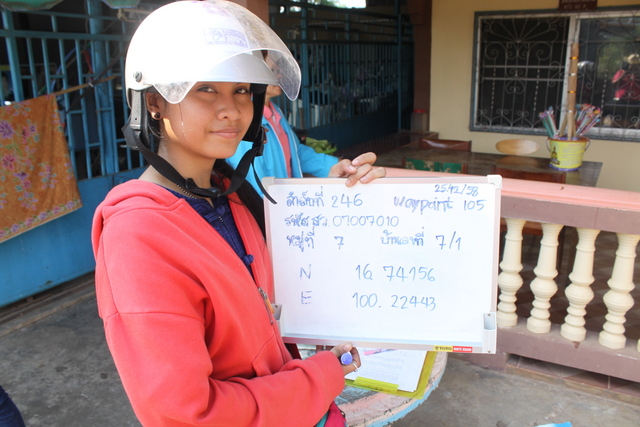 25/12/58
ลำดับที่ 246 waypoint 105
รหัส สว. 07007010
หมู่ที่ 7 บ้านเลขที่ 7/1
N 16.74156
E 100.22443